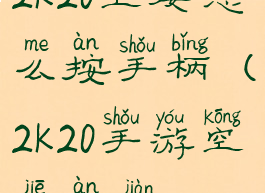 2K20上要怎
me àn shǒu bǐng
么按手柄（
shǒu yóu kōng
2K20手游空
jiē àn jiàn